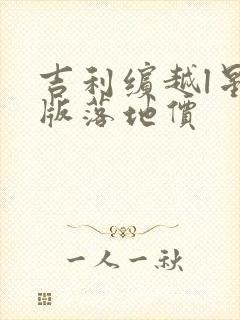 吉利缤越l星
版落地價
一人一秋